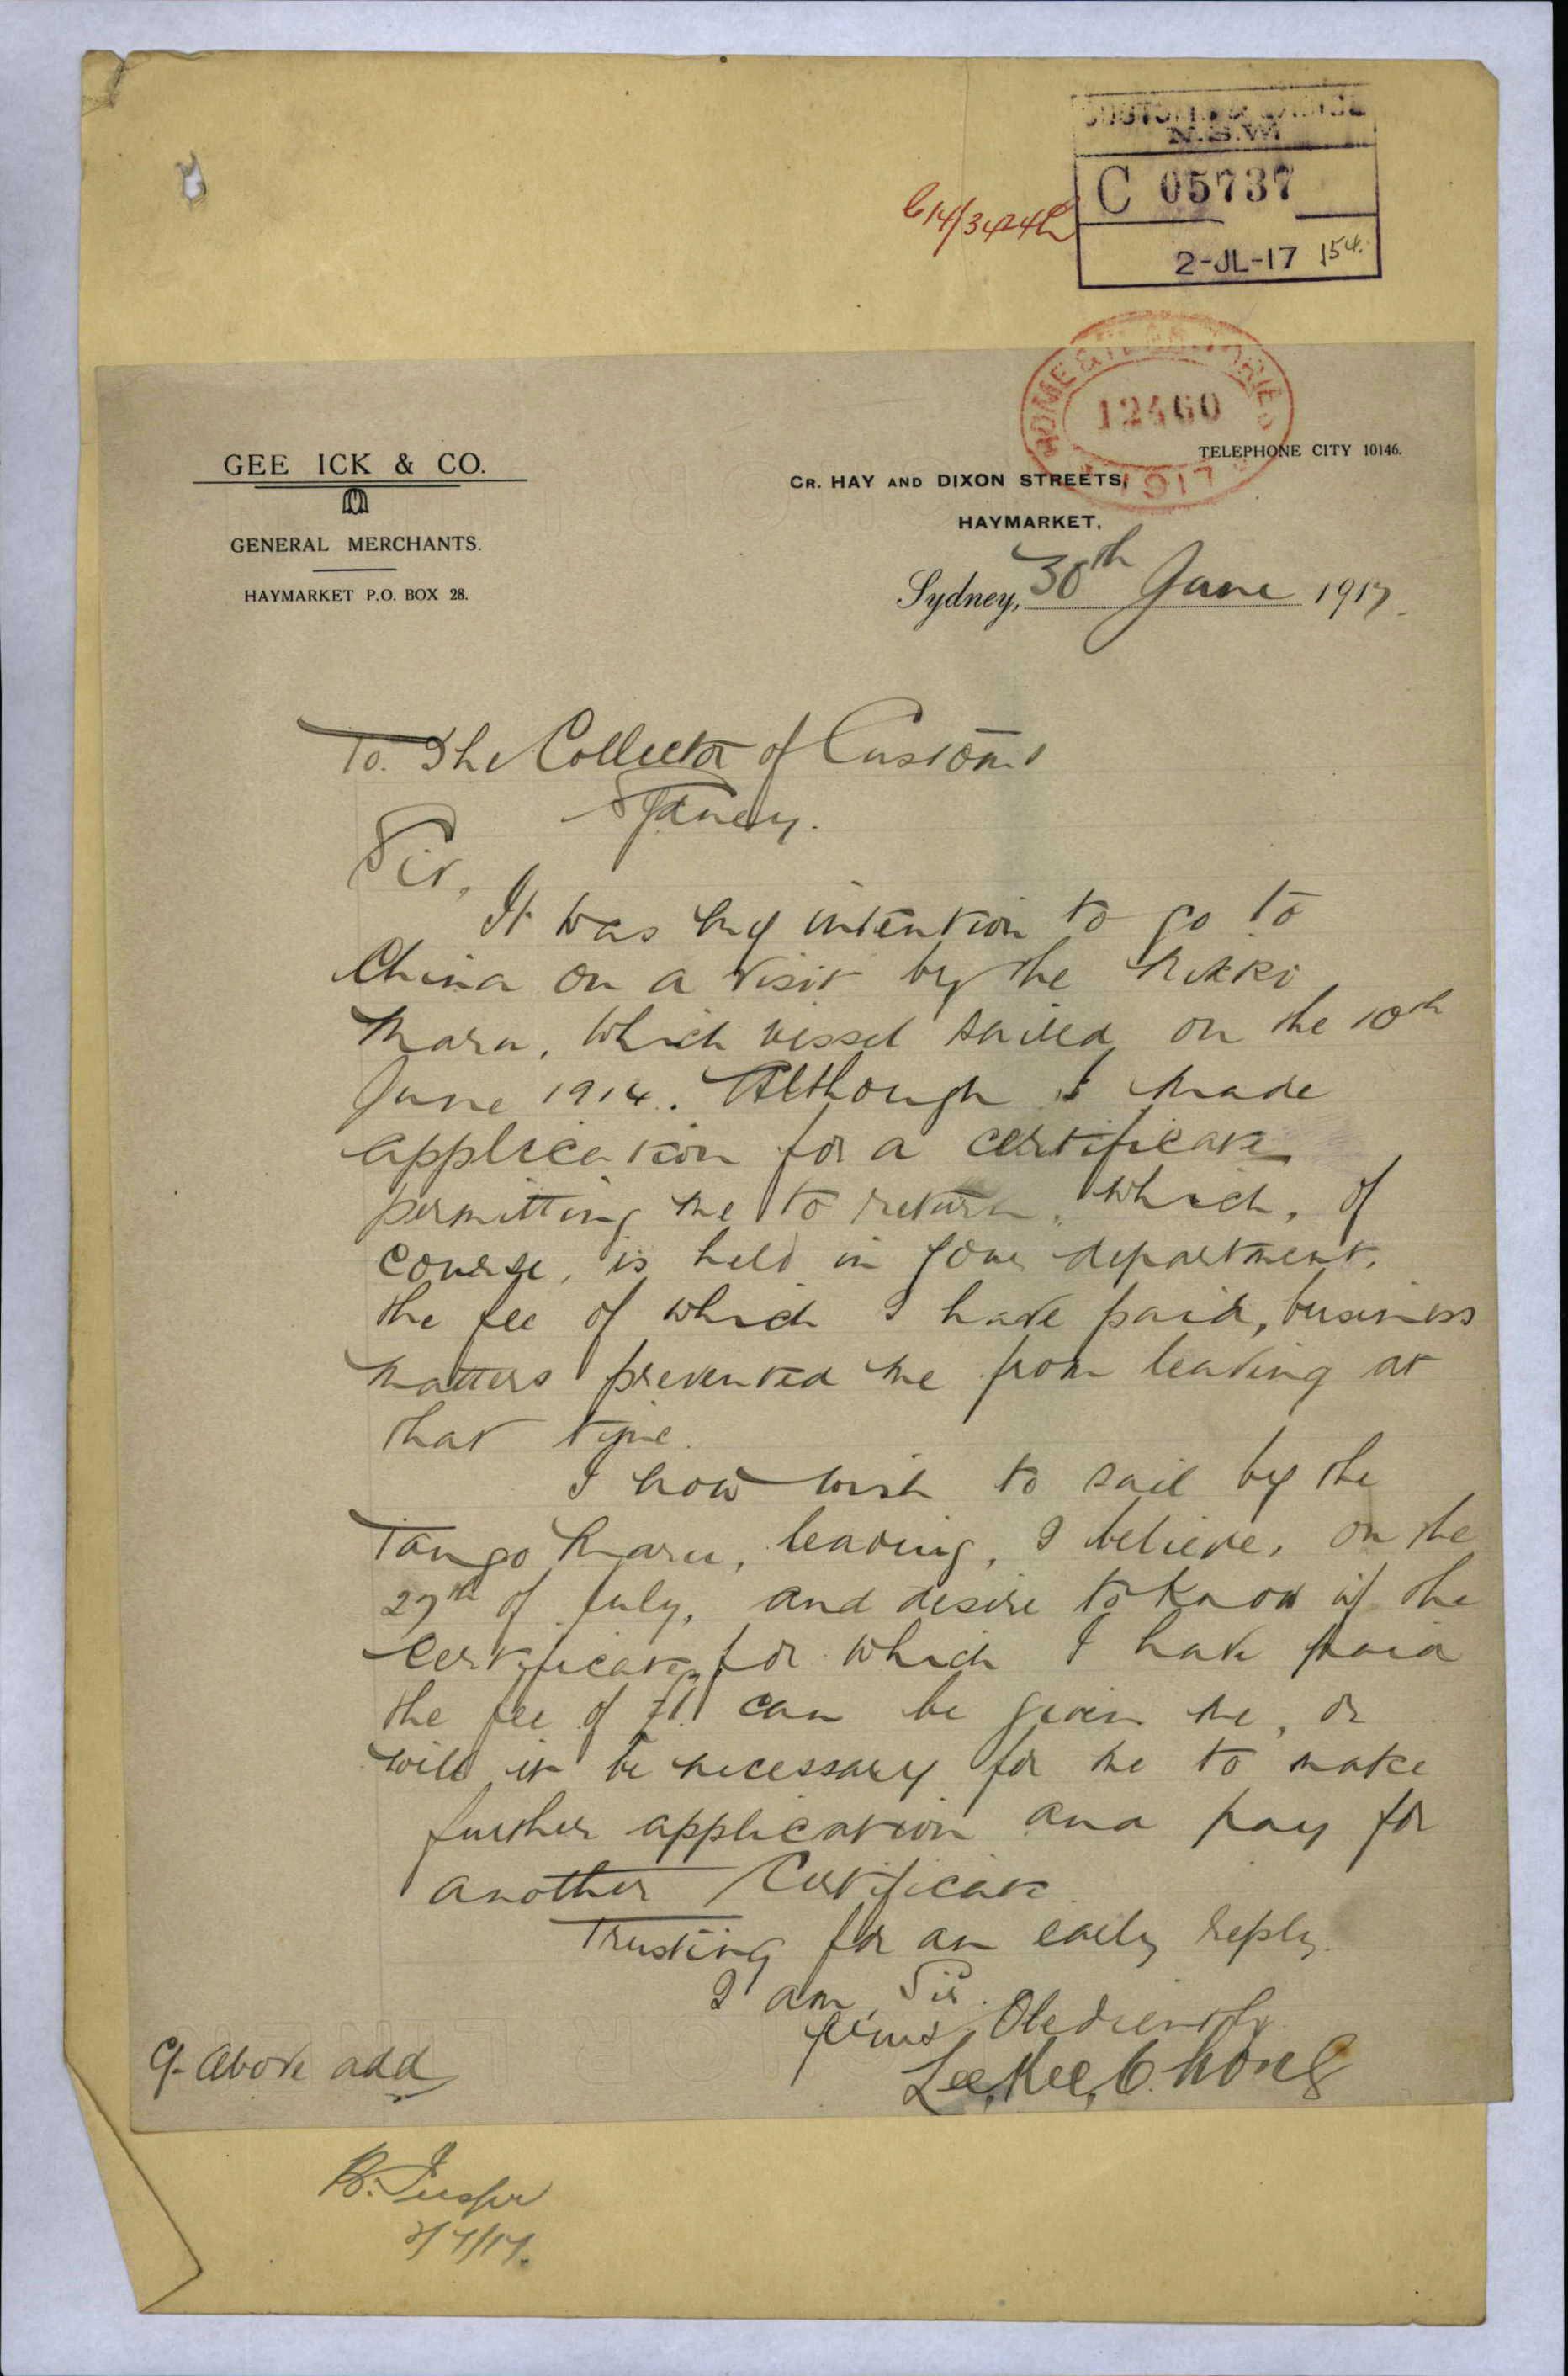 CUSTOMS & EXCISE
N.S.W.
C 05737
C14/3424
2-JL-17 154.
HOME & TERRITORIES
12460
1917
GEE ICK & CO.
GENERAL MERCHANTS.
HAYMARKET P.O. BOX 28.
TELEPHONE CITY 10146.
CR. HAY AND DIXON STREETS,
HAYMARKET,
Sydney, 30th June 1917.
To. The Collector of Customs
Sydney.
Sir,
It was my intention to go to
China on a visit by the Nikko
Maru, which vessel sailed on the 10th
June 1914. Although I made
application for a certificate
permitting me to return, which, of
course, is held in your department,
the fee of which I have paid, business
matters prevented me from leaving at
that time.
I now wish to sail by the
Tango Maru, leaving, I believe, on the
27th of July, and desire to know if the
Certificate for which I have paid
the fee of £1 can be given me, or
will it be necessary for me to make
further application and pay for
another Certificate.
Trusting for an early reply.
I am, Sir.
Yours Obediently
Lee, Kee, Chong
C/- Above add
B.
2/7/17.